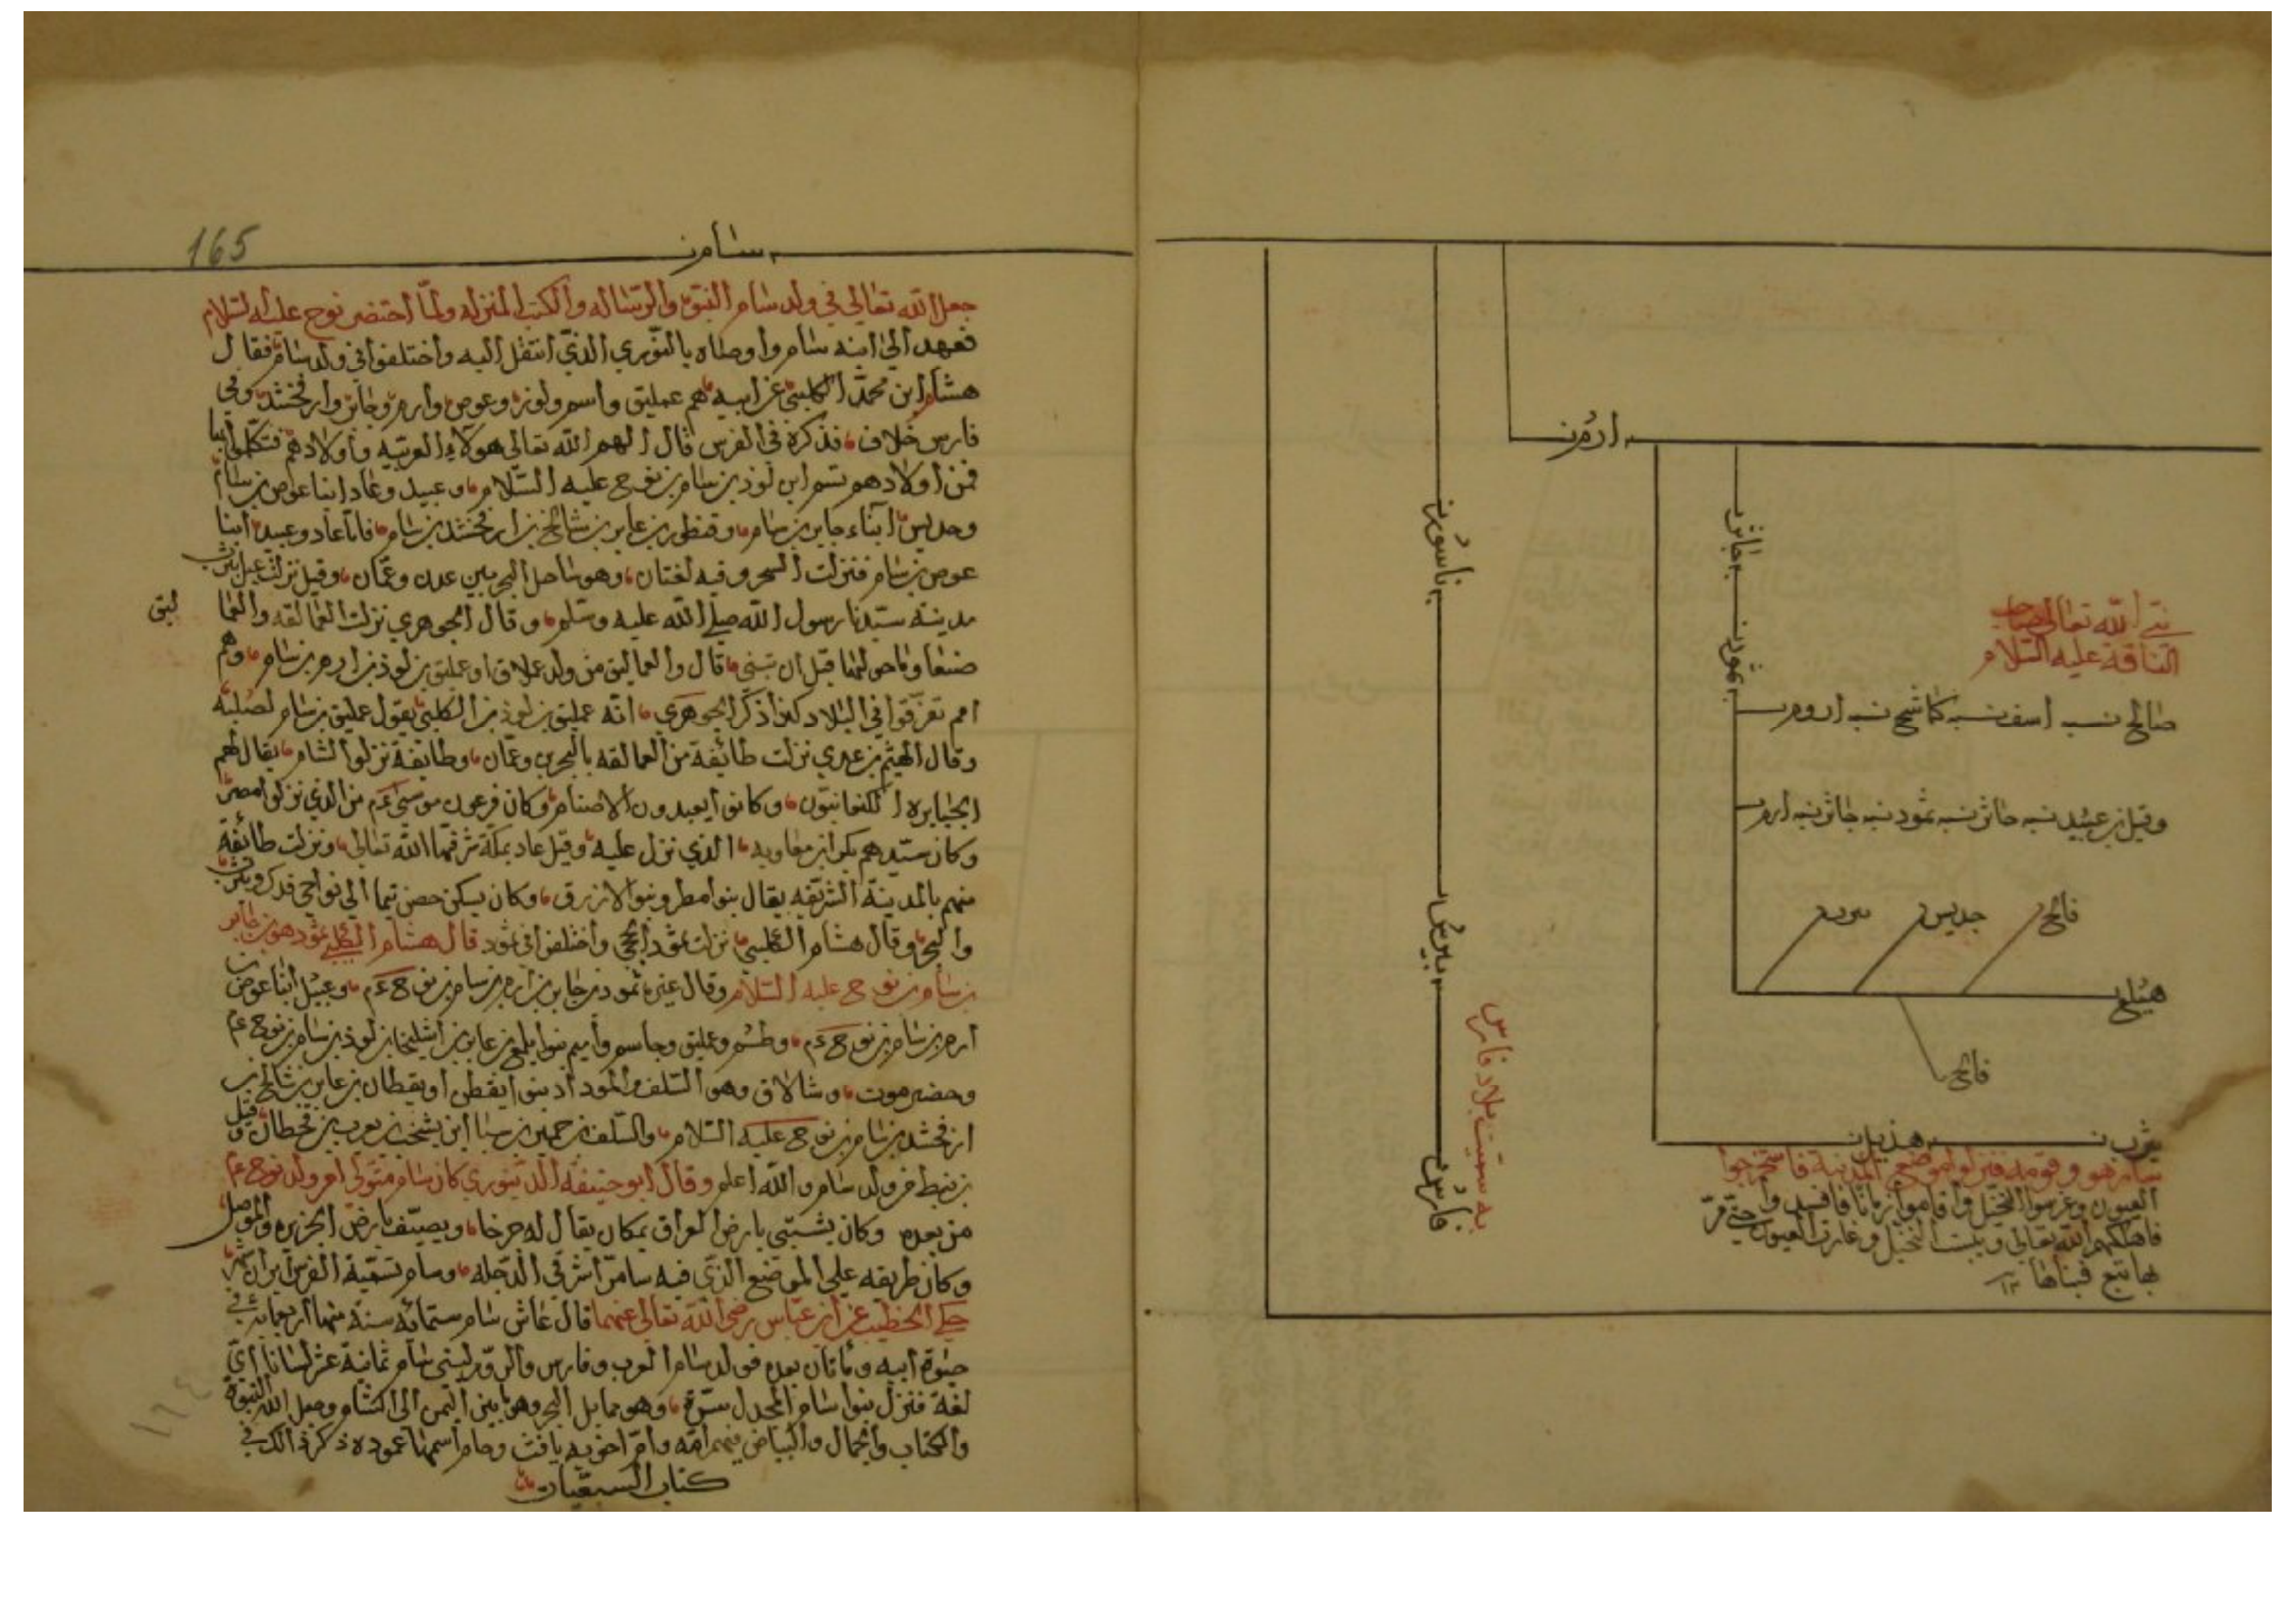 ارم بن
ناسور بن
جاثر بن
ثمود بن
نبي الله تعالى صاحب
الناقة عليه السلام
صالح بن اسف بن كاشح بن اروم بن
وقيل بن عبيد بن جاثر بن ثمود بن جاثر بن ارم
فالح
جديس
هيلع
فالح
بيرس
به سميت بلاد فارس
فارس
يثرب بن هذيل بن
سار هو وقومه فنزلوا موضع المدينة فاستخرجوا
العيون وغرسوا النخيل واقاموا زمانا فافسدوا
فاهلكهم الله تعالى ويبست النخيل وغارت العيون حتى مر
بها تبع فبناها ١٢
165
سام بن
جعل الله تعالى في ولد سام النبوة والرسالة والكتب المنزله ولما احتضر نوح عليه السلام
فعهد الى ابنه سام واوصاه بالنوري الذي انتقل اليه واختلفوا في ولد سام فقال
هشام ابن محمد الكلبي عن ابيه هم عمليق واسم ولوذ وعوص وارم وجابر وارفخشد وفي
فارس خلاف فذكره في الفرس قال الهم الله تعالى هولاء العربيه واولادهم فتكلموا بها
فمن اولادهم تسم ابن لوذ بن سام بن نوح عليه السلام وعبيد وعاد ابنا عوص بن سام
وجديس ابناء جابر بن سام وقنطر بن عابر بن شالخ بن ارفخشد بن سام فاما عاد وعبيد ابنا
عوص بن سام فنزلت السحر وفيه لغتان وهو ساحل البحر بين عدن وعمان وقيل نزلت عبيل يثرب
مدينة سيدنا رسول الله صلى الله عليه وسلم وقال الجوهري نزلت العمالقه والعما
ليق
صنعا وما حولها قبل ان تبنى قال والعماليق من ولد عملاق او عمليق بن لوذ بن ارم بن سام وهم
امم تفرقوا في البلاد كذا ذكر الجوهري انه عمليق بن لوذ بن الكلبي يقول عمليق بن سام لصلبه
وقال الهيثم بن عدي نزلت طائفة من العمالقه بالبحرين وعمان وطائفة نزلوا الشام يقال لهم
الجبابره الكنعانيون وكانوا يعبدون الاصنام وكان فرعون موسى عم من الذي نزلوا مصر
وكان سيدهم بكر ابن معاويه الذي نزل عليه وقيل عاد بمكة شرفها الله تعالى ونزلت طائفة
منهم بالمدينة الشريفه يقال بنوا مطر وبنوا الازرق وكان يسكن حصن تيما الى نواحي فدك ويثرب
والبحر وقال هشام الكلبي نزلت ثمود الحجر واختلفوا في ثمود قال هشام الكلبي ثمود هو بن جابر
بن سام بن نوح عليه السلام وقال غيره ثمود بن جابر بن ارم بن سام بن نوح عم وعبيل ابنا عوص بن
ارم بن سام بن نوح عم وطسم وعمليق وجاسم واميم بنوا يلمع بن عابر بن اشليخا بن لوذ بن سام بن نوح عم
وحضرموت وشالاف وهو السلف والموداد بنوا يقطن او يقطان بن عابر بن شالخ بن
ارفخشد بن سام بن نوح عليه السلام والسلف بن حمير بن سبا ابن يشجب بن يعرب بن قحطان وقيل
بن نبط من ولد سام والله اعلم وقال ابو حنيفه الدينوري كان سام متولي امر ولد نوح عم
من بعده وكان يشتي بارض العراق بمكان يقال له جرخا ويصيف بارض الجزيره والموصل
وكان طريقه على الموضع الذي فيه سامرا شرقي الدجله وسام تسميه الفرس ايران
حكى الخطيب عن ابن عباس رضي الله تعالى عنهما قال عاش سام ستمائه سنة منها اربعمايه في
حيوة ابيه ومائتان بعده فولد سام العرب وفارس والروم لبني سام ثمانية عشر لسانا اي
لغة فنزل بنوا سام المجدل سرة وهو مما يلي البحر وهو ما بين اليمن الى الشام وجعل الله النبوة
والكتاب والجمال والبياض فيهم امه وام اخويه يافث وحام اسمها عموده ذكر ذالك في
كتاب السبعيات
١٦٤